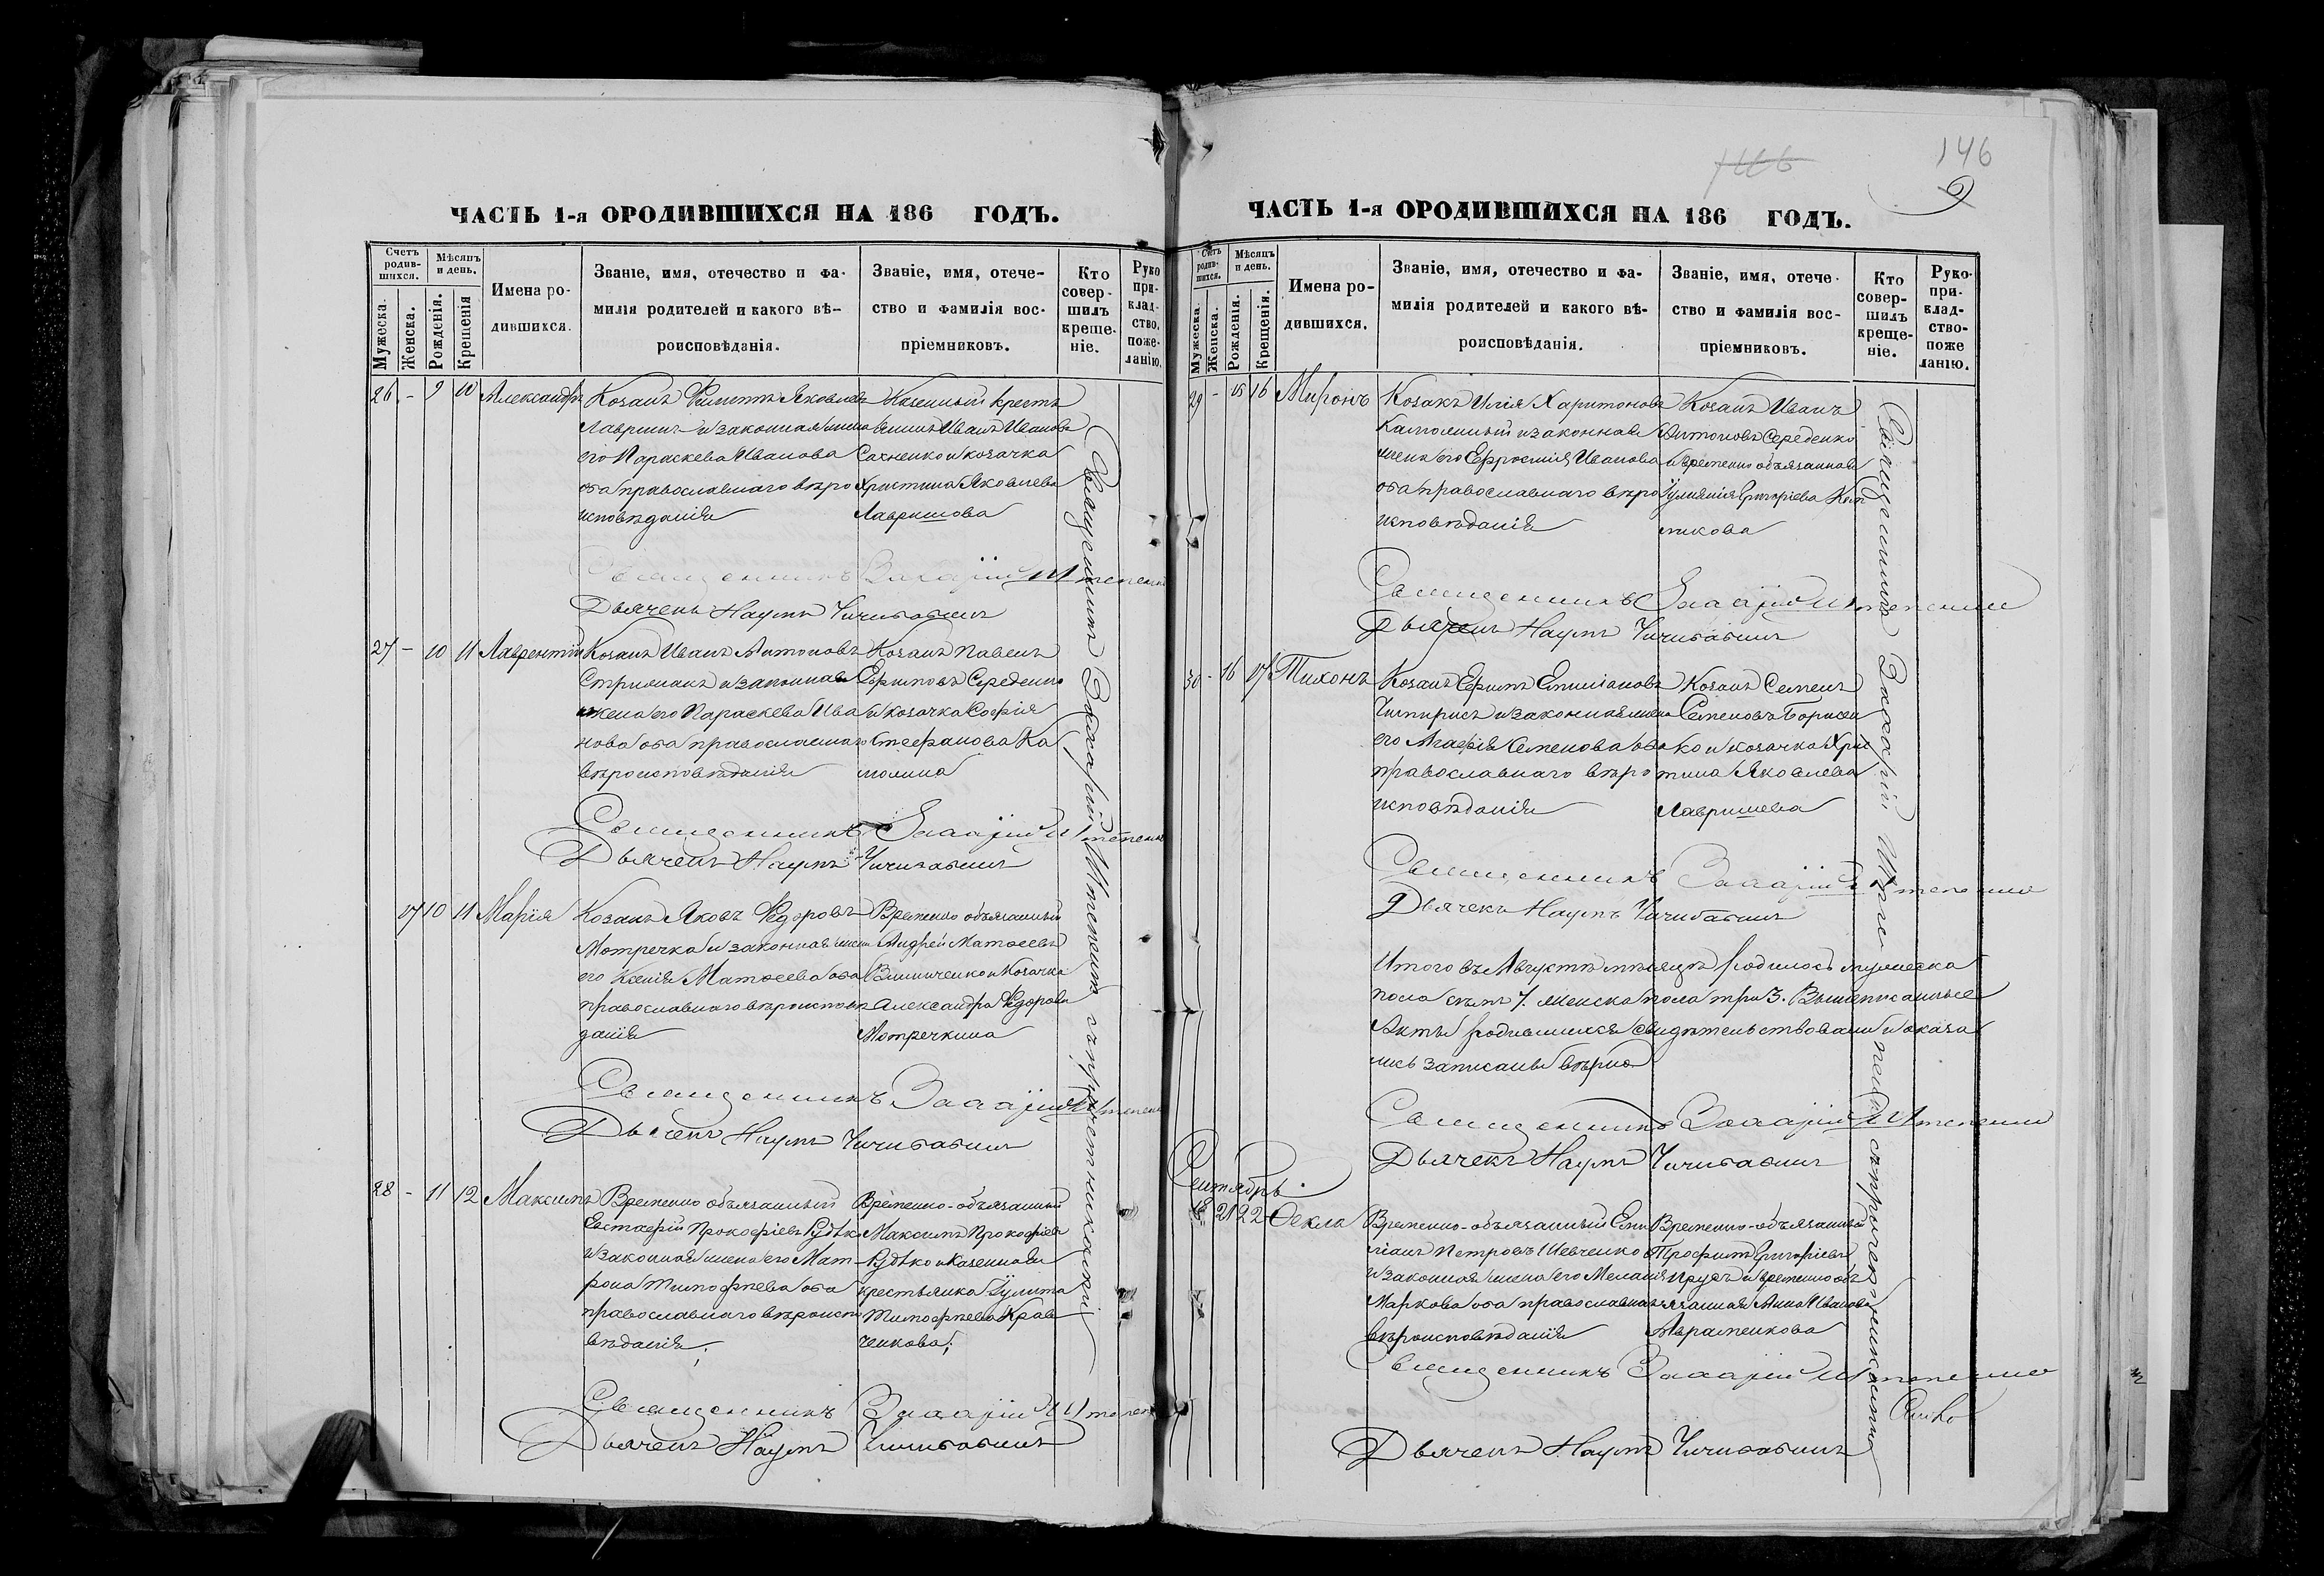 146
146
9
ЧАСТЬ 1-я ОРОДИВШИХСЯ НА 186 ГОДЪ.
Счетъ родив-шихся.
Мѣсяцъ и день.
Мужеска.
Женска.
Рожденія.
Крещенія
Имена ро-
дившихся.
Званіе, имя, отечество и фа-
милія родителей и какого вѣ-
роисповѣданія.
Званіе, имя, отече-
ство и фамилія вос-
пріемниковъ.
Кто совер-шилъ креще-ніе.
Руко при-клад-ство, поже-ланію.
26 - 9 10 Александръ
Козакъ Филиппъ Яковлевъ
Лавришъ и законная жена
его Параскева Иванова
оба православнаго вѣро
исповѣданія
Казенный кресть
янинъ Иванъ Ивановъ
Сахненко и козачка
Христина Яковлева
Лавришова
Священникъ Захарій
Дьячекъ Наумъ Чичибабинъ
27 - 10 11 Лаврентій
Козакъ Иванъ Антоновъ
Стрижакъ и законная
жена его Параскева Ива
нова оба православнаго
вѣроисповѣданія
Козакъ Павелъ
Ефимовъ Середенко
и козачка Софія
Стефанова Ка
молина
Священникъ Захарій
Дьячекъ Наумъ Чичибабинъ
17 10 11 Марія
Козакъ Яковъ Федоровъ
Мотречка и законная жена
его Ксенія Матѳеева оба
православнаго вѣроисповѣ
данія
Временно обязанный
Андрей Матѳеевъ
Винниченко и Козачка
Александра Федорова
Мотречкина
Священникъ Захарій
Дьячекъ Наумъ Чичибабинъ
28 - 11 12 Максимъ
Временно обязанный
Евстафій Прокофіевъ Рудько
и законная жена его Мат
рона Тимофѣева оба
православнаго вѣроиспо
вѣданія;
Временно-обязанный
Максимъ Прокофіевъ
Рудько и Казенная
крестьянка Іулита
Тимофѣева Крав
ченкова;
Священникъ Захарій
Дьячекъ Наумъ Чичибабинъ
Священникъ Захарій съ причетниками
ЧАСТЬ 1-я ОРОДИВШИХСЯ НА 186 ГОДЪ.
Счетъ родив-шихся.
Мѣсяцъ и день.
Мужеска.
Женска.
Рожденія.
Крещенія.
Имена ро-
дившихся.
Званіе, имя, отечество и фа-
милія родителей и какого вѣ-
роисповѣданія.
Званіе, имя, отече-
ство и фамилія вос-
пріемниковъ.
Кто совер-шилъ креще-ніе.
Руко-при-клад-ство-поже ланію.
29 - 15 16 Миронъ
Козакъ Илія Харитоновъ
Камолинный и законная
жена его Ефросинія Иванова
оба православнаго вѣро
исповѣданія
Козакъ Иванъ
Антоновъ Середенко
и временно обязанная
Іулианія Григоріева
никова
Священникъ Захарій
Дьячекъ Наумъ Чичибабинъ
30 - 16 17 Тихонъ
Козакъ Ефимъ Емиліановъ
и законная жена
его Агафія Семенова оба
православнаго вѣро
исповѣданія
Козакъ Семенъ
Семеновъ Борисен
ко и козачка Хрис
тина Яковлева
Лавришева
Священникъ Захарій
Дьячекъ Наумъ Чичибабинъ
Итого въ Августѣ мѣсяцѣ родилось мужеска
пола семь 7. Женска пола три 3. Вышеписанные
Акты родившихся свидѣтельствованы и оказа
лись записаны вѣрно
Священникъ Захарій
Дьячекъ Наумъ Чичибабинъ
Сентябрь.
18 21 22 Ѳекла
Временно-обязанный Еми
ліанъ Петровъ Шевченко
и законная жена его Меланія
Маркова оба православнаго
вѣроисповѣданія
Временно-обязанный
Трофимъ Григоріевъ
Прусъ и временно об
язанная Анна Иванова
Авраменкова
Священникъ Захарій
Дьячекъ Наумъ Чичибабинъ
Священникъ Захарій съ причетниками